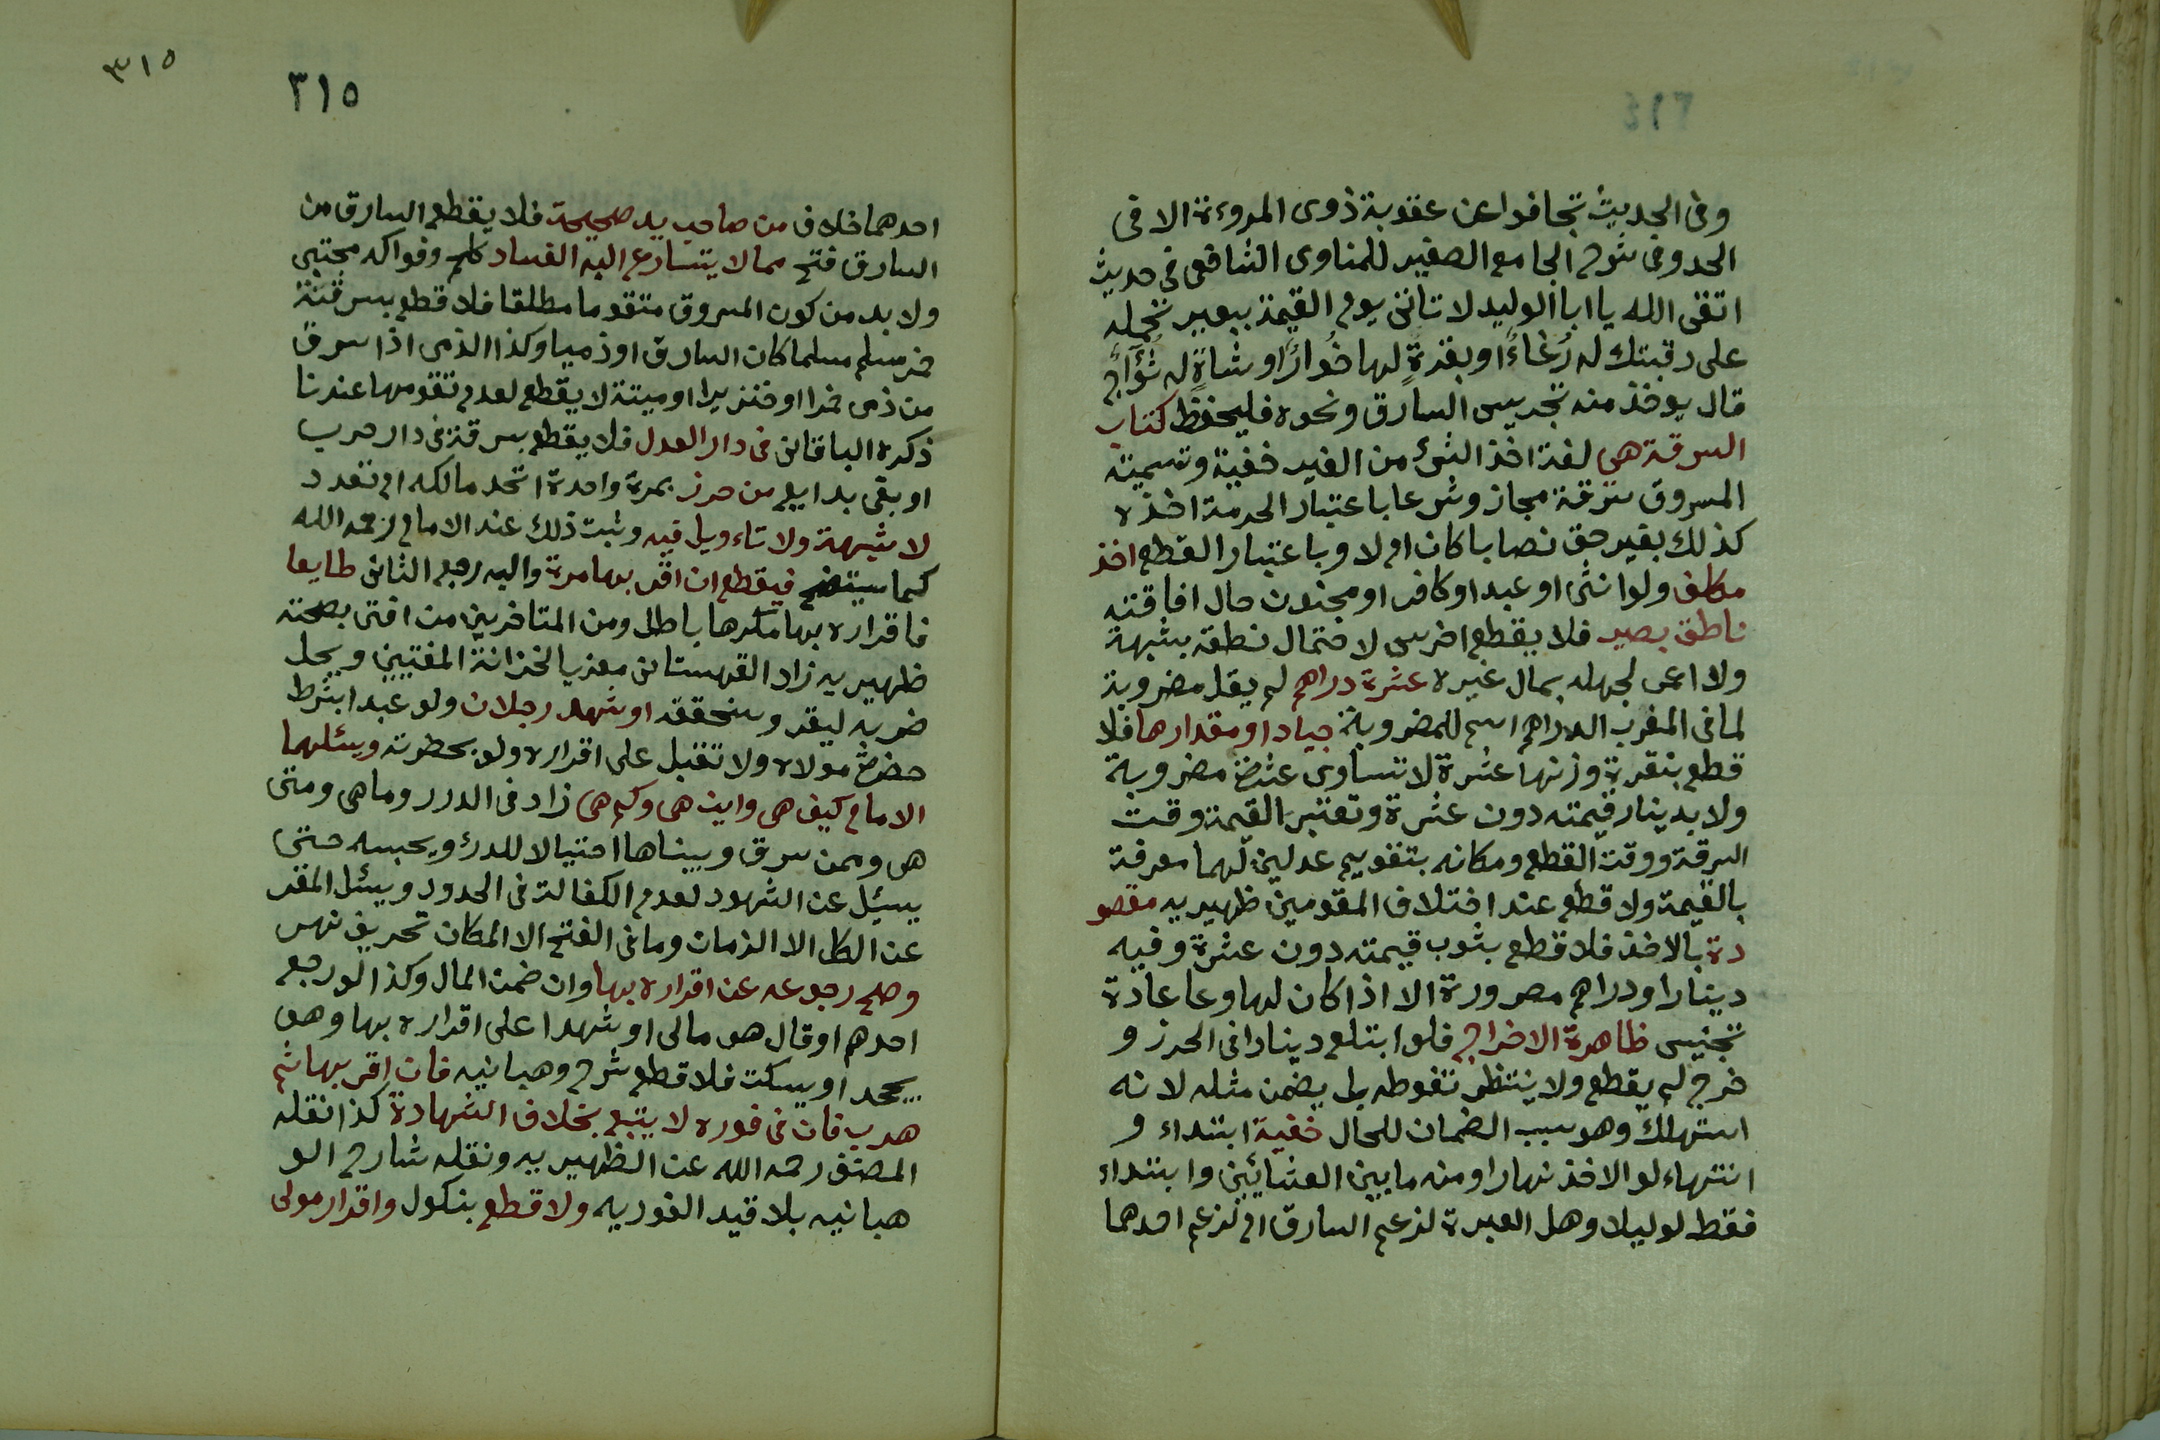 وفى الحديث تجافوا عن عقوبة ذوى المروءة الا فى
الحد وفى شرح الجامع الصغير للمناوى الشافعى فى حديث
اتقى الله يا ابا الوليد لا تاتى يوم القيمة ببعير تحمله
على رقبتك له رُغاءٌ او بقرةٍ لها خُوارٌ او شاةٍ له ثُؤاجٌ
قال يوخذ منه تجريس السارق ونحوه فليحفظ كتاب
السرقة هى لغة اخذ الشئ من الغير خفية وتسمية
المسروق سرقة مجاز وشرعا باعتبار الحرمة اخذه
كذلك بغير حق نصابا كان ام لا وباعتبار القطع اخذ
مكلف ولو انثى او عبدا وكافر او مجنون حال افاقته
ناطق بصير فلا يقطع اخرس لاحتمال نطقه بشبهة
ولا اعمى لجهله بمال غيره عشرة دراهم لم يقل مضروبة
لما فى المغرب الدراهم اسم للمضروبة جياد او مقدارها فلا
قطع بنقرة وزنها عشرة لا تساوى عشرة مضروبة
ولا بدينار قيمته دون عشرة وتعتبر القيمة وقت
السرقة ووقت القطع ومكانه بتقويم عدلين لهما معرفة
بالقيمة ولا قطع عند اختلاف المقومين ظهيريه مقصو
دة بالاخذ فلا قطع بثوب قيمته دون عشرة وفيه
دينارا ودراهم مصرورة الا اذا كان لها وعا عادة
تجنيس ظاهرة الاخراج فلو ابتلع دينارا فى الحرز و
خرج لم يقطع ولا ينتظر تغوطه بل يضمن مثله لانه
استهلك وهو سبب الضمان للحال خفية ابتداء و
انتهاء لو الاخذ نهارا ومنه ما بين العشائين وابتداء
فقط لو ليلا وهل العبرة لزعم السارق ام لزعم احدهما
٣١٥
٣١٥
احدهما خلاف من صاحب يد صحيحة فلا يقطع السارق من
السارق فتح مما لا يتسارع اليه الفساد كلحم وفواكه مجتبى
ولا بد من كون المسروق متقوما مطلقا فلا قطع بسرقة
خمر مسلم مسلما كان السارق او ذميا وكذا الذمى اذا سرق
من ذمى خمرا او خنزيرا او ميتة لا يقطع لعدم تقومها عندنا
ذكره الباقانى فى دار العدل فلا يقطع بسرقة فى دار حرب
او بغى بدايع من حرز بمرة واحدة اتحد مالكه ام تعدد
لا شبهة ولا تاءويل فيه وثبت ذلك عند الامام رحمه الله
كما سيتضح فيقطع ان اقر بها مرة واليه رجع الثانى طايعا
فاقراره بها مكرها باطل ومن المتاخرين من افتى بصحته
ظهيريه زاد القهستانى معزيا لخزانة المفتيين ويحل
ضربه ليقر وسنحققه او شهد رجلان ولو عبدا بشرط
حضرة مولاه ولا تقبل على اقراره ولو بحضرته ويسئلهما
الامام كيف هى واين هى وكم هى زاد فى الدرر وما هى ومتى
هى وممن سرق وبيناها احتيالا للدرء ويحبسه حتى
يسئل عن الشهود لعدم الكفالة فى الحدود ويسئل المقر
عن الكل الا الزمان وما فى الفتح الا المكان تحريف نهر
وصح رجوعه عن اقراره بها وان ضمن المال وكذا لو رجع
احدهم او قال هو مالى او شهدا على اقراره بها وهو
يجحد او يسكت فلا قطع شرح وهبانيه فان اقر بها ثم
هرب فان فى فوره لا يتبع بخلاف الشهادة كذا نقله
المصنف رحمه الله عن الظهيريه ونقله شارح الو
هبانيه بلا قيد الفوريه ولا قطع بنكول واقرار مولى